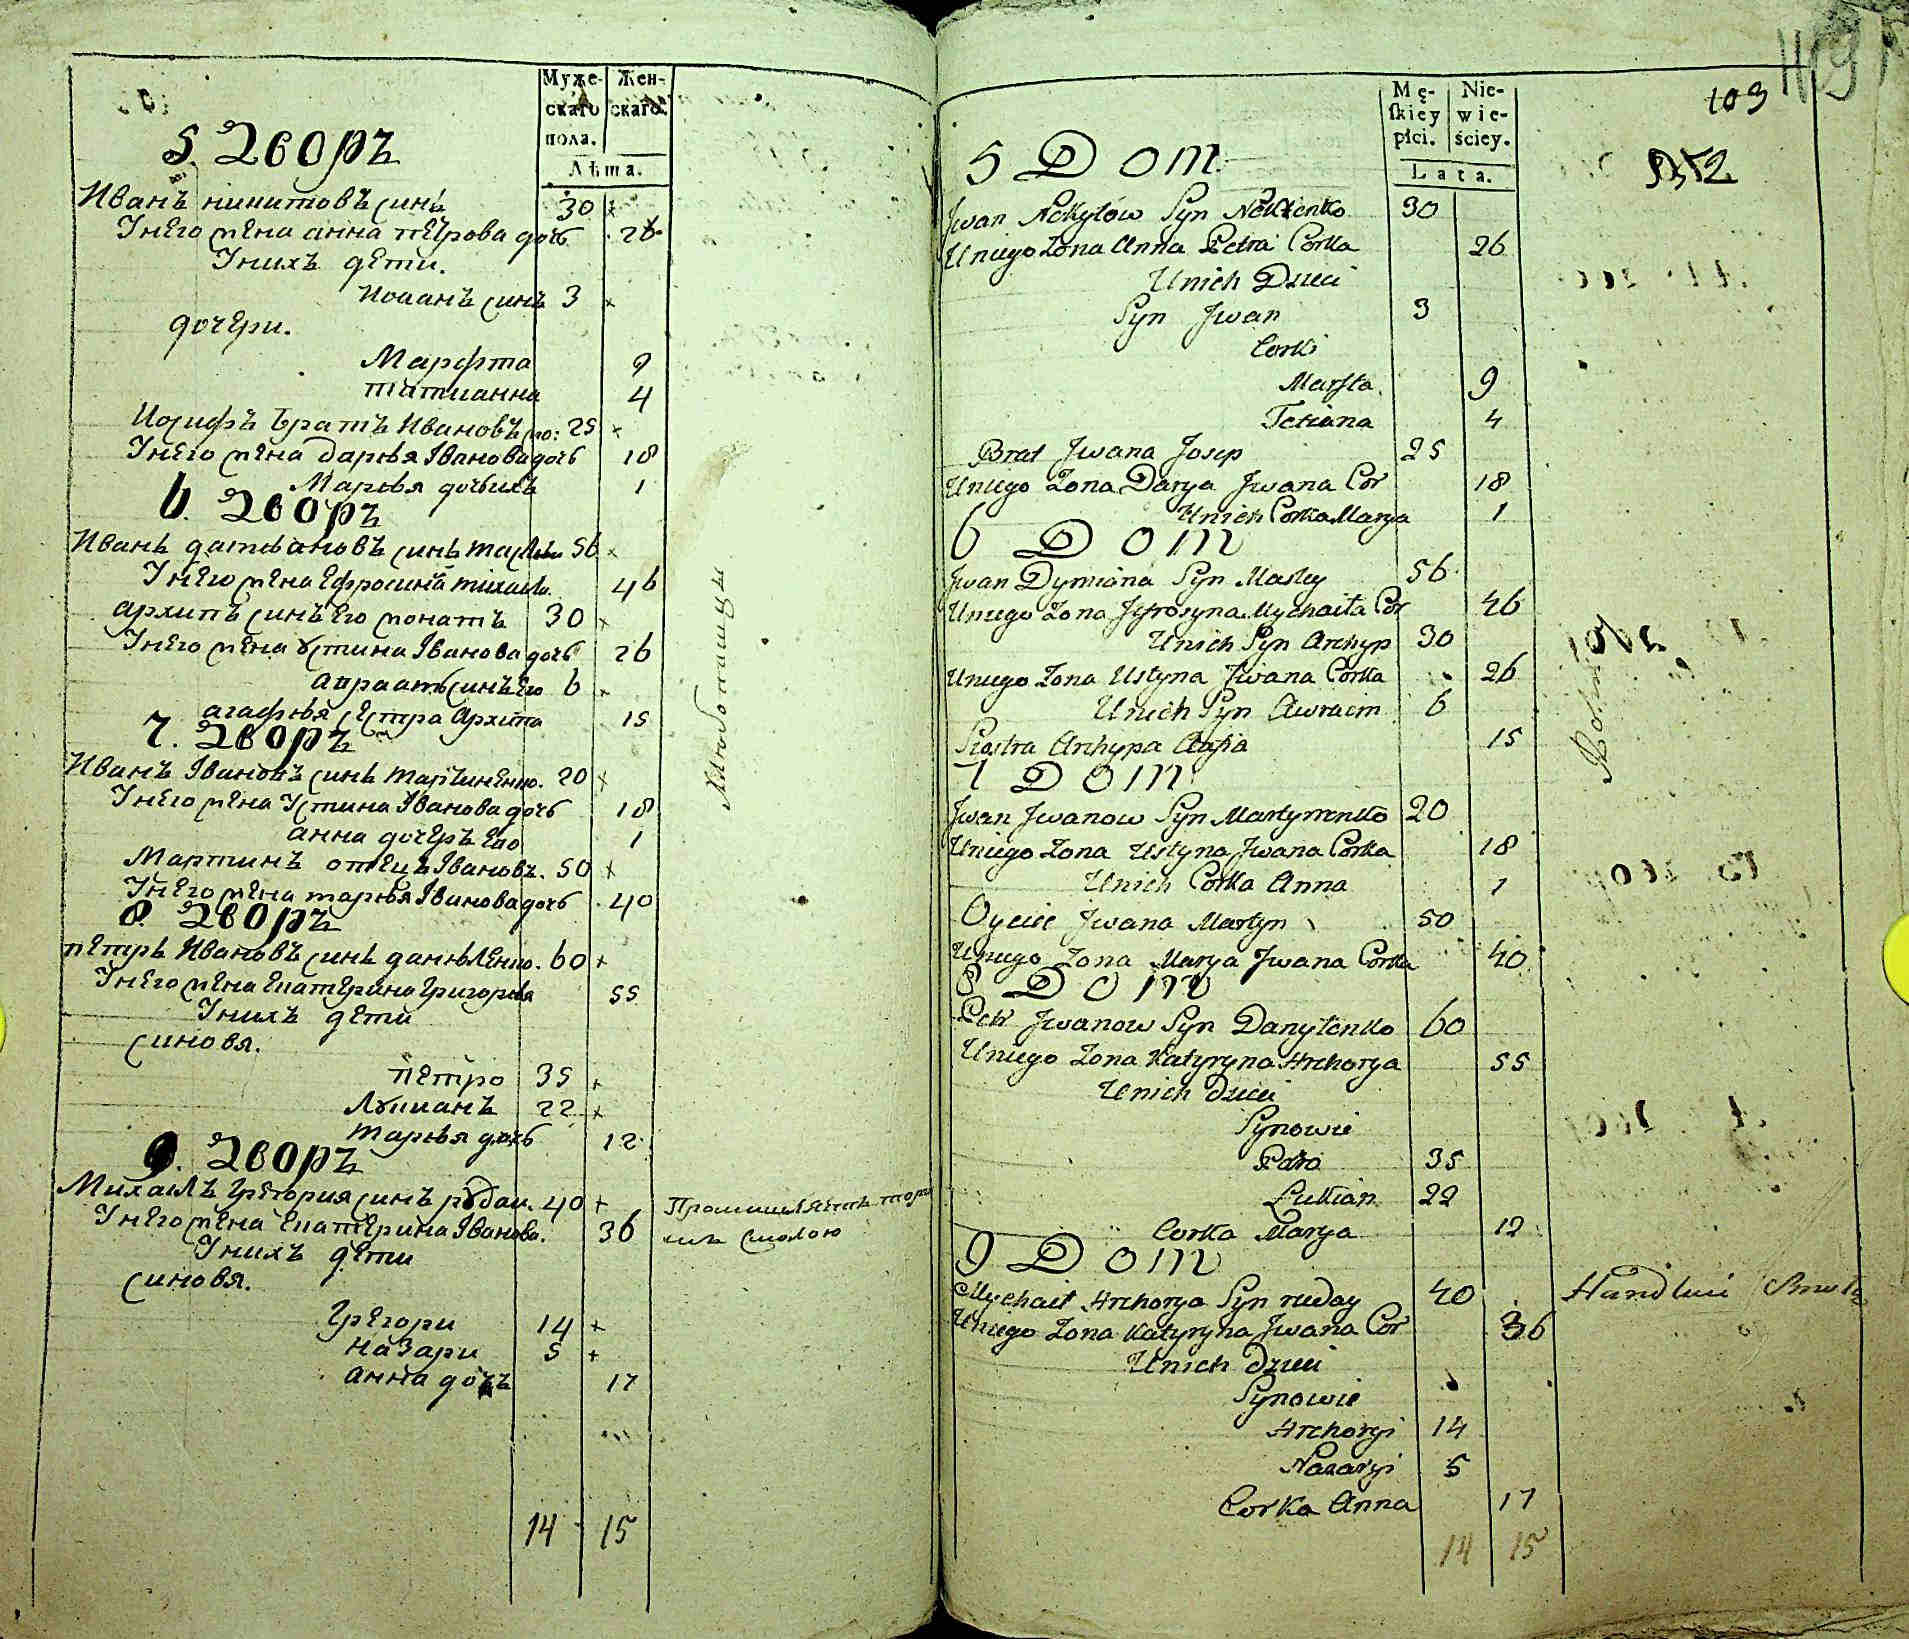 Муже-
скаго
пола.
Жен-
скаго.
Лѣта.
5. Дворъ
Иванъ никитовъ синъ 30
Унего жена анна пЕтрова дочь 26
Унихъ дЕти.
Иоанъ синъ 3
дочЕри.
Марфта 9
татианна 4
Иосифъ братъ Ивановъ 25
Унего жЕна дарья Iвановадочь 18
Марья дочьихъ 1
6. Дворъ
Иванъ синъ 56
Унего жЕна Ефросиния михаила 46
архипъ синъЕго 30
Унего жЕна устина Iванова дочь 26
авраамъ синъЕго 6
агафья сЕстра Архипа 15
7. Дворъ
Иванъ Iвановъ синъ мартинЕнко. 20
Унего жЕна Устина Iванова дочь 18
анна дочЕръ Его 1
Мартинъ отЕцъ Iвановъ. 50
Унего жЕна марья Iвановадочь 40
8. Дворъ
пЕтръ Ивановъ синъ данилЕнко. 60
Унего жЕна ЕкатЕрина григорЕва 55
Унихъ дЕти
синовя.
пЕтро 35
Лукианъ 22
марья дочь 12
9. Дворъ
Михаилъ грЕгория синъ рудаи. 40
Унего жЕна ЕкатЕрина Iванова. 36
Унихъ дЕти
синовя.
грЕгори 14
назари 5
анна дочъ 17
14 15
Промишляетъ
смолою
103
Mę-
ſkiey
płci.
Nie-
wie-
ściey.
Lata.
5 Dom
Jwan Nekytów Syn 30
Uniego Zona Anna Petra Corka 26
Unich Dzieci
Syn Jwan 3
Corki
Marfta 9
Tetiana 4
Brat Jwana Josip 25
Uniego Zona Darya Jwana Cor 18
Unich Corka Marya 1
6 Dom
Jwan Dymiana Syn 56
Uniego Zona Jefrosyna Mychaiła Cor 46
Unich Syn Archyp 30
Uniego Zona Ustyna Jwana Corka 26
Unich Syn Awraim 6
Siostra Archypa Aafia 15
7 Dom
Jwan Jwanow Syn Martynenko 20
Uniego Zona Ustyna Jwana Corka 18
Unich Corka Anna 1
Oyciec Jwana Martyn 50
Uniego Zona Marya Jwana Corka 40
8 Dom
Petr Jwanow Syn Danyłenko 60
Uniego Zona Katyryna Hrehorya 55
Unich dzieci
Synowie
Petro 35
Łukian 22
Corka Marya 12
9 Dom
Mychaił Hrehorya Syn ruday 40
Uniego Zona Katyryna Jwana Cor 36
Handlui Smołą
Unich dzieci
Synowie
Hrehoryi 14
Nazaryi 5
Corka Anna 17
14 15